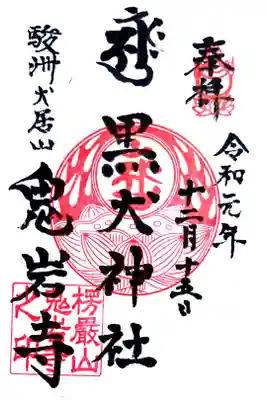 奉拝
令和元年
十二月十五日
黒犬神社
駿州犬居山
鬼岩寺
楞嚴山
鬼岩寺
之印